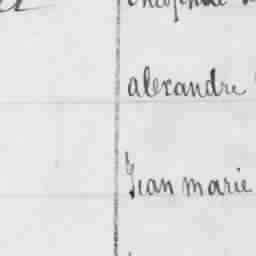 alexandre
Jean marie